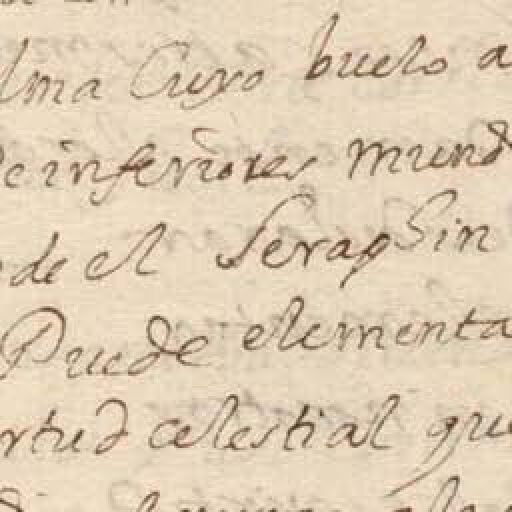 lma Cuyo buelo a
de inferiores mund
de el Seraphin
Puede elementa
rtud celestial que